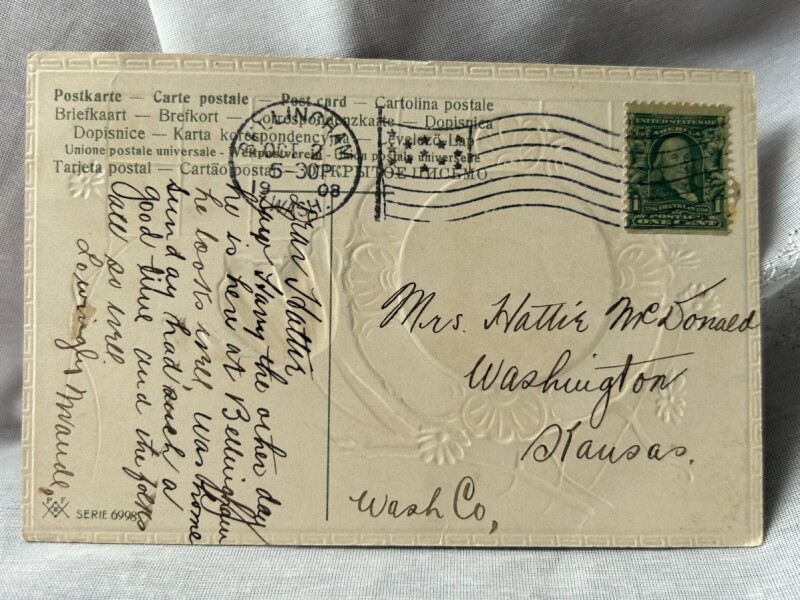 Postkarte — Carte postale — Post card — Cartolina postale
Briefkaart — Brefkort — Correspondenzkarte — Dopisnica
Dopisnice — Karta korespondencyjna — Levelező-Lap
Unione postale universale - Weltpostverein - Union postale universelle
Tarjeta postal — Cartão postal — ОТКРЫТОЕ ПИСЬМО
BELLINGHAM
OCT 2
5-30P
1908
WASH.
UNITED STATES OF
AMERICA
FRANKLIN
1 1
POSTAGE
ONE CENT
Dear Hattie
Saw Harry the other day
he is here at Bellingham
he looks well was home
Sunday had such a
good time and the folks
all so well
Lovingly Maude,
Mrs. Hattie McDonald
Washington
Kansas.
Wash Co,
P F B
SERIE 6998